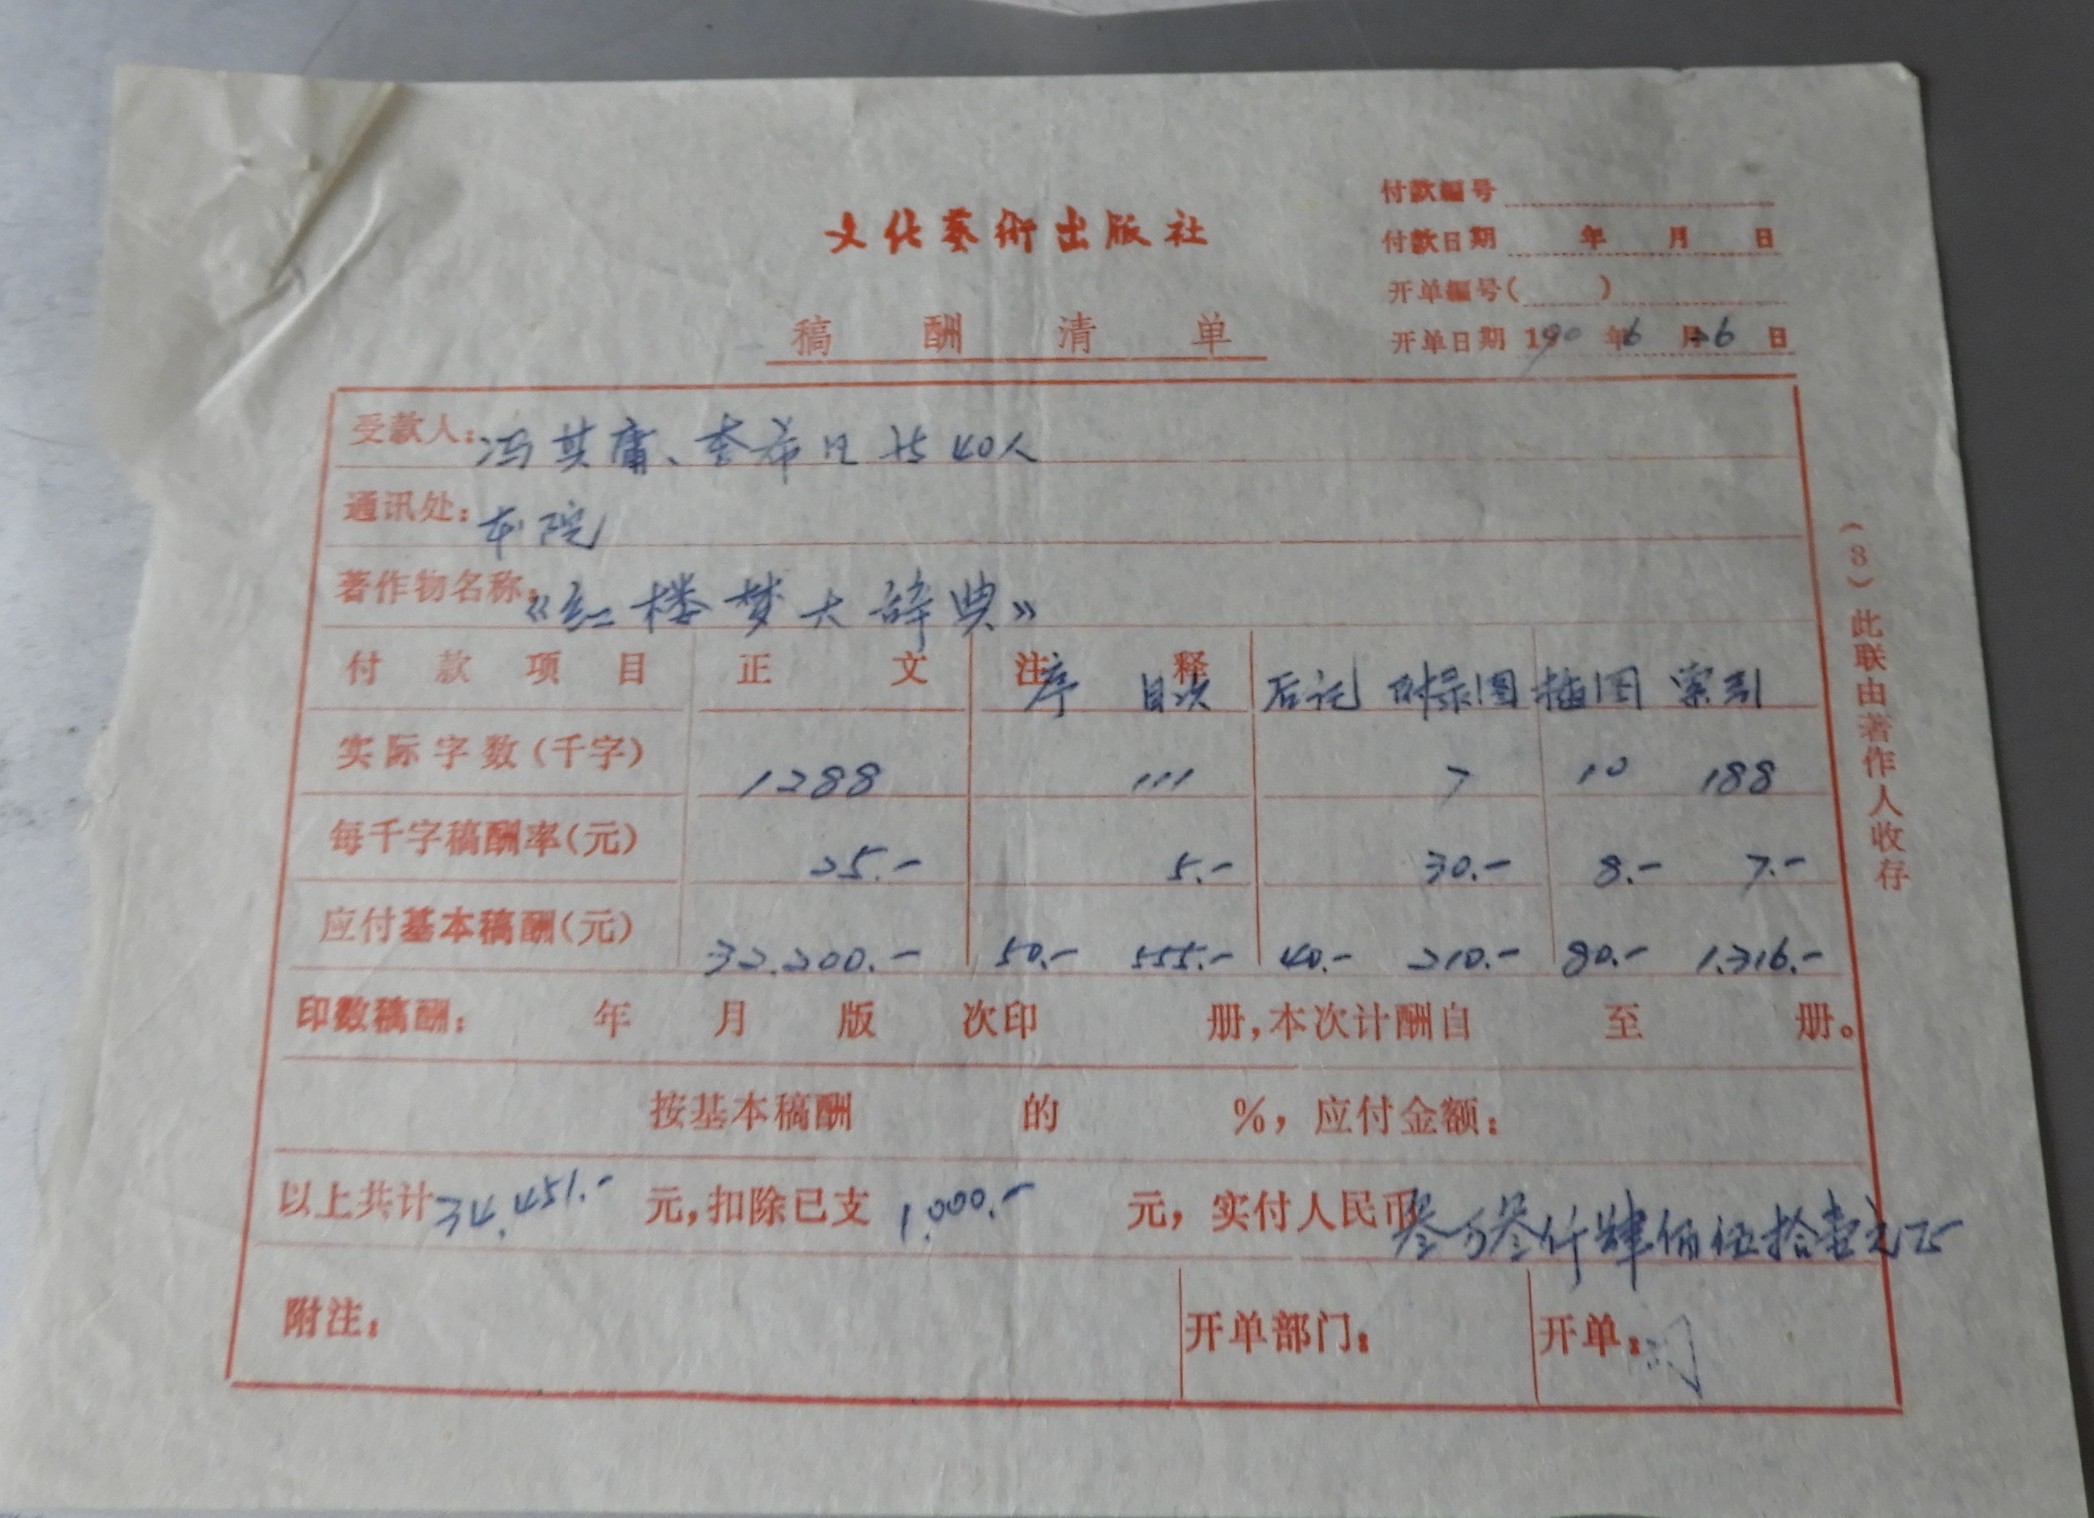 文化藝術出版社
稿酬清单
付款编号
付款日期 年 月 日
开单编号( )
开单日期 1990年6月26日
受款人:冯其庸、李希凡 等40人
通讯处:本院
著作物名称:《红楼梦大辞典》
付款项目 正文 注释 序 目次 后记 附录图 插图 索引
实际字数(千字) 1288 111 7 10 188
每千字稿酬率(元) 25.- 5.- 30.- 8.- 7.-
应付基本稿酬(元) 32.200.- 50.- 555.- 40.- 210.- 80.- 1.316.-
印数稿酬: 年 月 版 次印 册,本次计酬自 至 册。
按基本稿酬 的 %,应付金额:
以上共计34.451.-元,扣除已支1.000.-元,实付人民币叁万叁仟肆佰伍拾壹元正
附注: 开单部门: 开单:
(3)此联由著作人收存